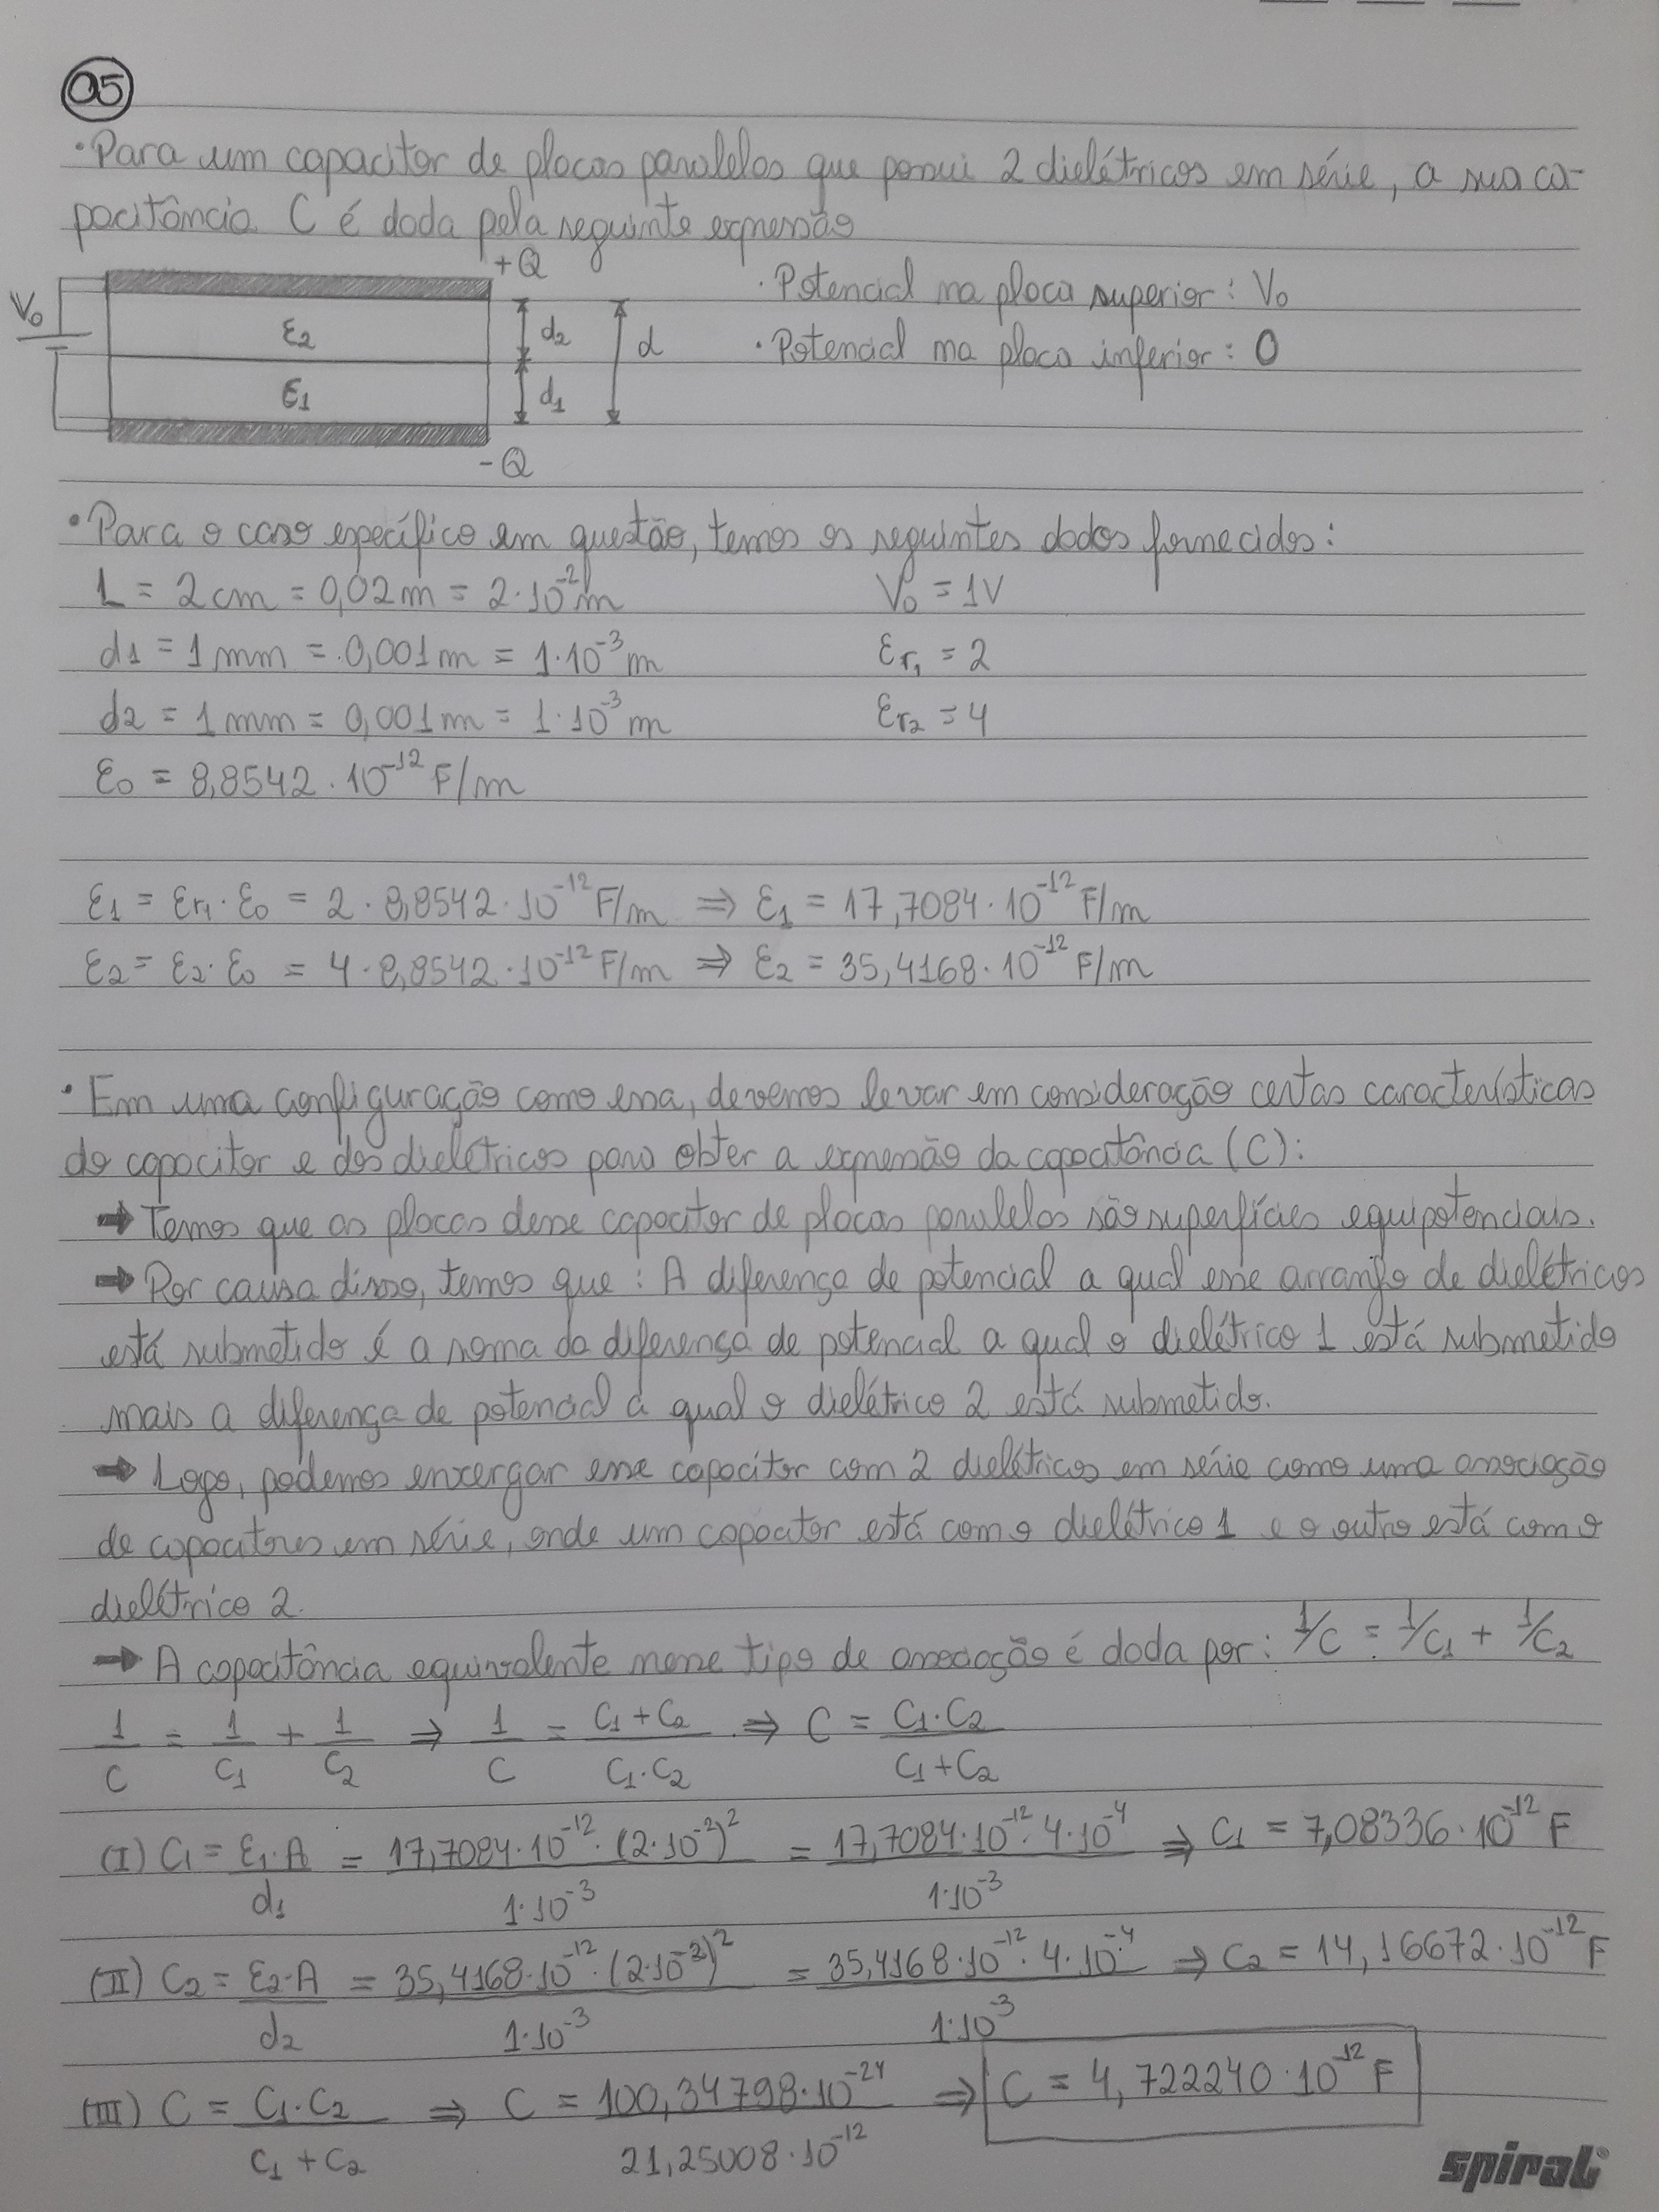 05
• Para um capacitor de placas paralelas que possui 2 dielétricos em série, a sua ca-
pacitância C é dada pela seguinte expressão
+Q
V₀
ε₂
d₂
d
ε₁
d₁
-Q
· Potencial na placa superior: V₀
· Potencial na placa inferior: 0
• Para o caso específico em questão, temos os seguintes dados fornecidos:
L = 2cm = 0,02m = 2·10⁻²m V₀ = 1V
d₁ = 1mm = 0,001m = 1·10⁻³m εr₁ = 2
d₂ = 1mm = 0,001m = 1·10⁻³m εr₂ = 4
ε₀ = 8,8542·10⁻¹² F/m
ε₁ = εr₁·ε₀ = 2·8,8542·10⁻¹² F/m ⇒ ε₁ = 17,7084·10⁻¹² F/m
ε₂ = ε₂·ε₀ = 4·8,8542·10⁻¹² F/m ⇒ ε₂ = 35,4168·10⁻¹² F/m
• Em uma configuração como essa, devemos levar em consideração certas características
do capacitor e dos dielétricos para obter a expressão da capacitância (C):
→ Temos que as placas desse capacitor de placas paralelas são superfícies equipotenciais.
→ Por causa disso, temos que: A diferença de potencial a qual esse arranjo de dielétricos
está submetido é a soma da diferença de potencial a qual o dielétrico 1 está submetido
mais a diferença de potencial a qual o dielétrico 2 está submetido.
→ Logo, podemos enxergar esse capacitor com 2 dielétricos em série como uma associação
de capacitores em série, onde um capacitor está com o dielétrico 1 e o outro está com o
dielétrico 2.
→ A capacitância equivalente nesse tipo de associação é dada por: 1/C = 1/C₁ + 1/C₂
1/C = 1/C₁ + 1/C₂ ⇒ 1/C = (C₁+C₂)/(C₁·C₂) ⇒ C = (C₁·C₂)/(C₁+C₂)
(I) C₁ = (ε₁·A)/d₁ = (17,7084·10⁻¹²·(2·10⁻²)²)/(1·10⁻³) = (17,7084·10⁻¹²·4·10⁻⁴)/(1·10⁻³) ⇒ C₁ = 7,08336·10⁻¹² F
(II) C₂ = (ε₂·A)/d₂ = (35,4168·10⁻¹²·(2·10⁻²)²)/(1·10⁻³) = (35,4168·10⁻¹²·4·10⁻⁴)/(1·10⁻³) ⇒ C₂ = 14,16672·10⁻¹² F
(III) C = (C₁·C₂)/(C₁+C₂) ⇒ C = (100,34798·10⁻²⁴)/(21,25008·10⁻¹²) ⇒ C = 4,722240·10⁻¹² F
spiral®